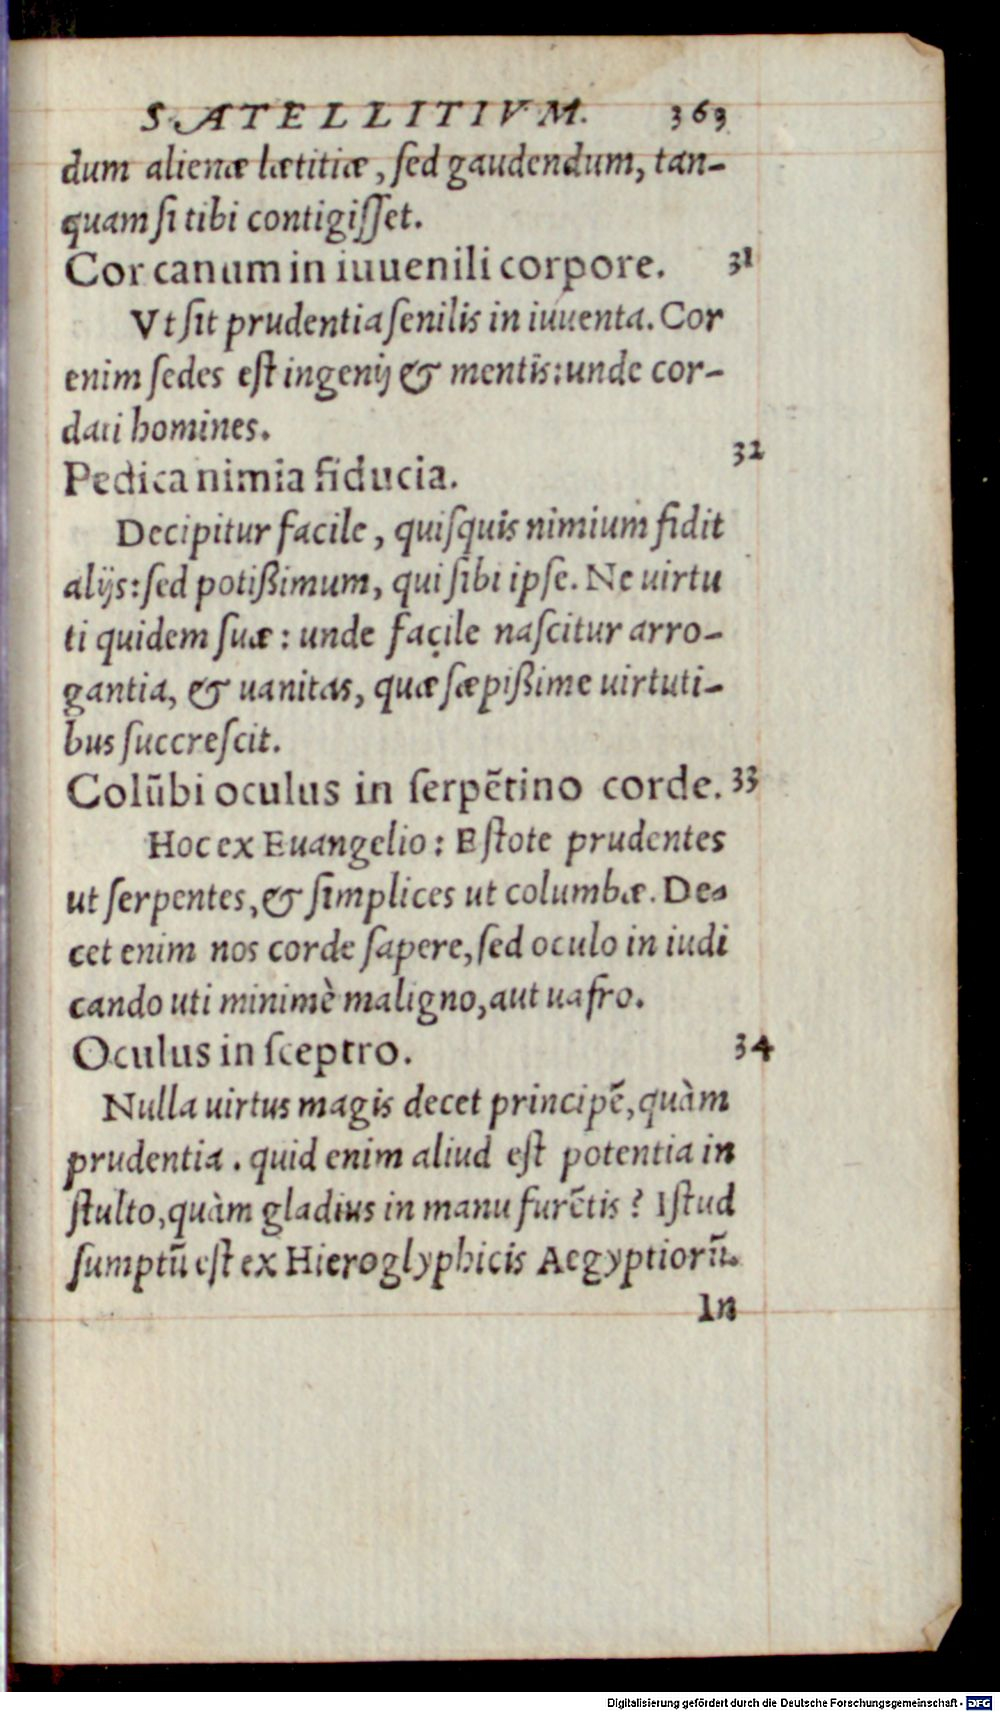 SATELLITIVM. 363
dum alienæ lætitiæ, ſed gaudendum, tan-
quam ſi tibi contigiſſet.
Cor canum in iuuenili corpore. 31
Vt ſit prudentia ſenilis in iuuenta. Cor
enim ſedes eſt ingenij & mentis: unde cor-
dati homines.
Pedica nimia fiducia. 32
Decipitur facile, quiſquis nimium fidit
alijs: ſed potißimum, qui ſibi ipſe. Ne uirtu
ti quidem ſuæ: unde facile naſcitur arro-
gantia, & uanitas, quæ ſæpißime uirtuti-
bus ſuccreſcit.
Colūbi oculus in ſerpētino corde. 33
Hoc ex Euangelio: Eſtote prudentes
ut ſerpentes, & ſimplices ut columbæ. De-
cet enim nos corde ſapere, ſed oculo in iudi
cando uti minimè maligno, aut uafro.
Oculus in ſceptro. 34
Nulla uirtus magis decet principē, quàm
prudentia. quid enim aliud eſt potentia in
ſtulto, quàm gladius in manu furētis? Iſtud
ſumptū eſt ex Hieroglyphicis Aegyptiorū.
In
Digitalisierung gefördert durch die Deutsche Forschungsgemeinschaft - DFG